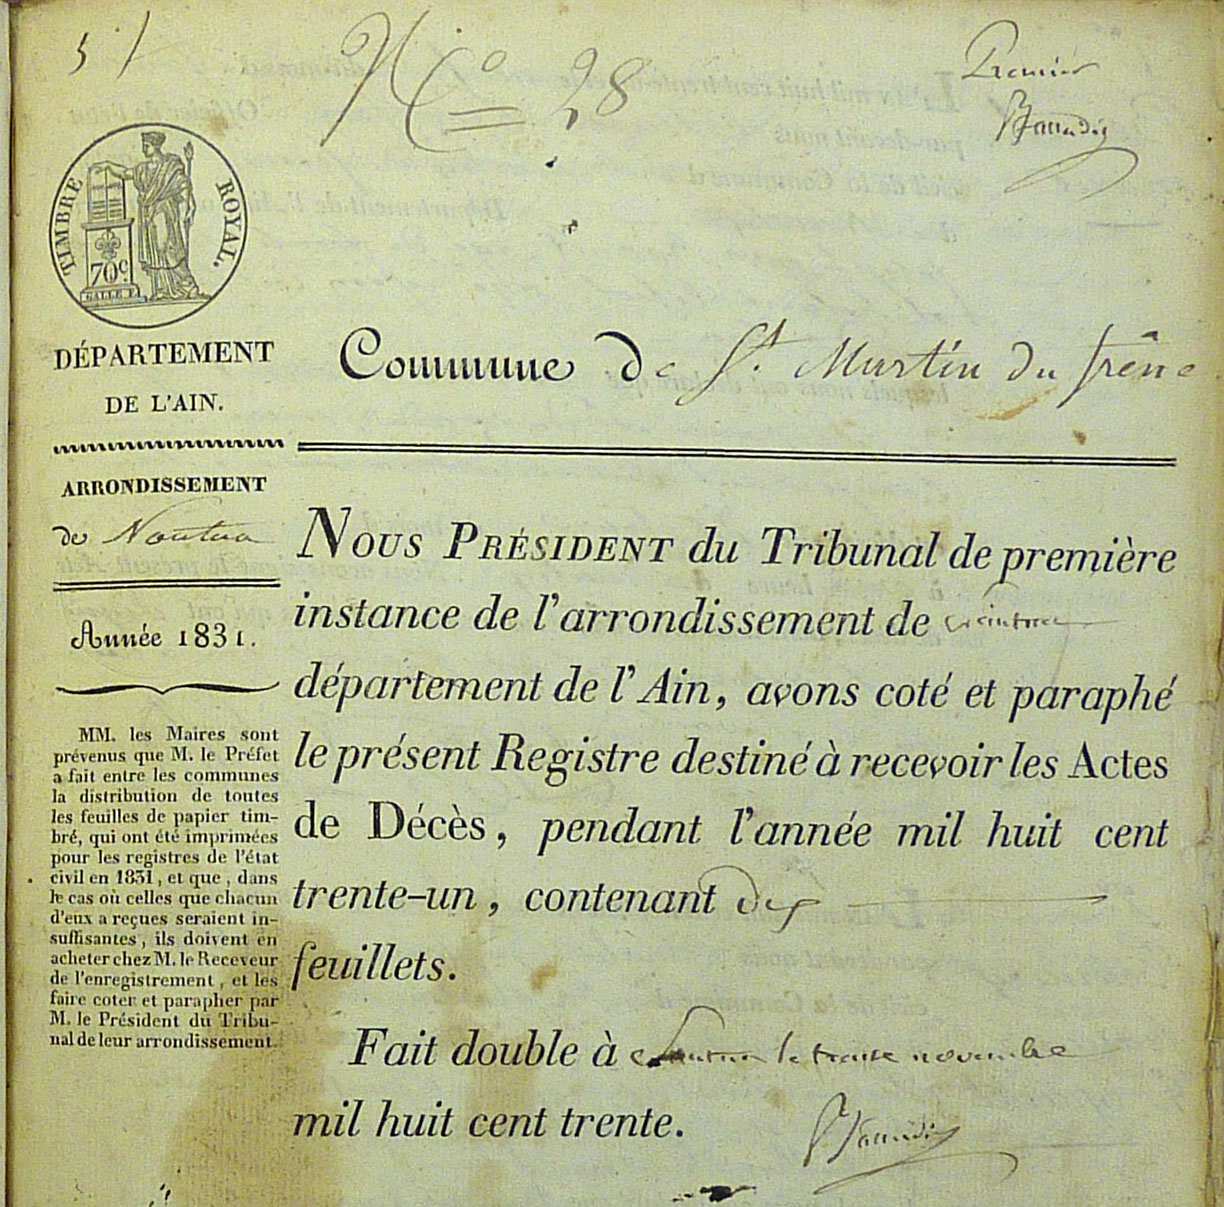 51
N° 28
Premier
TIMBRE ROYAL.
70c
GALLE F.
DÉPARTEMENT
DE L'AIN.
Commune de St. Martin du frêne
ARRONDISSEMENT
de Nantua
Année 1831.
MM. les Maires sont
prévenus que M. le Préfet
a fait entre les communes
la distribution de toutes
les feuilles de papier tim-
bré, qui ont été imprimées
pour les registres de l'état
civil en 1831, et que, dans
le cas où celles que chacun
d'eux a reçues seraient in-
suffisantes, ils doivent en
acheter chez M. le Receveur
de l'enregistrement, et les
faire coter et parapher par
M. le Président du Tribu-
nal de leur arrondissement.
NOUS PRÉSIDENT du Tribunal de première
instance de l'arrondissement de Nantua
département de l'Ain, avons coté et paraphé
le présent Registre destiné à recevoir les Actes
de Décès, pendant l'année mil huit cent
trente-un, contenant dix
feuillets.
Fait double à Nantua le treize novembre
mil huit cent trente.